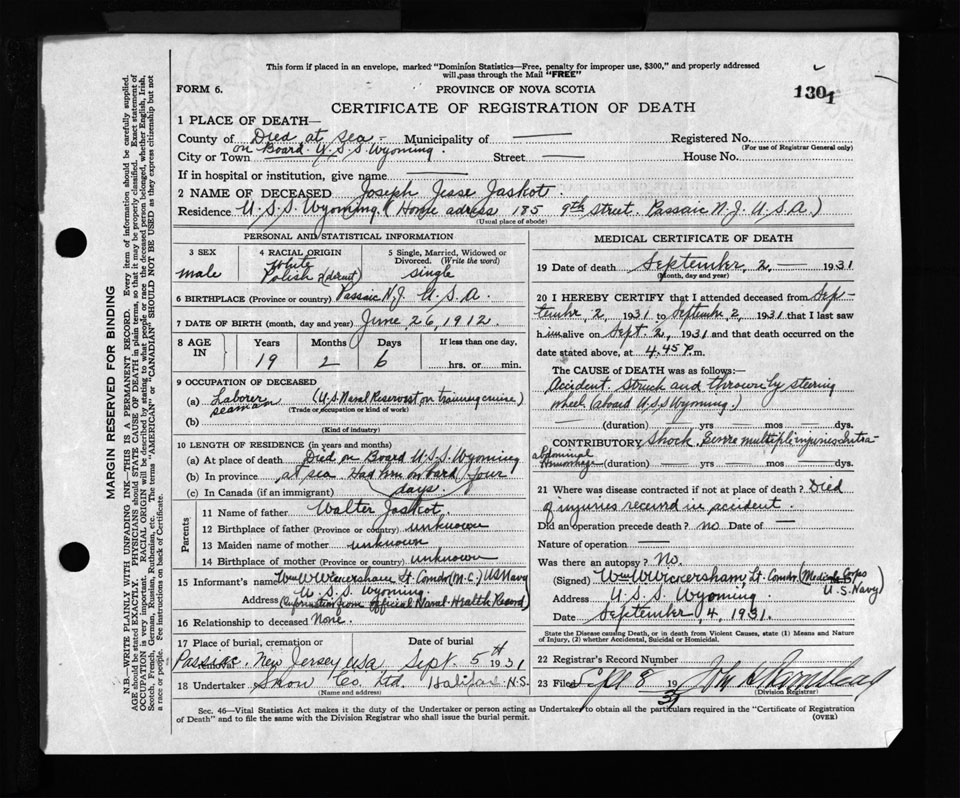 This form if placed in an envelope, marked "Dominion Statistics—Free, penalty for improper use, $300," and properly addressed
will pass through the Mail "FREE"
FORM 6.
PROVINCE OF NOVA SCOTIA
1301
CERTIFICATE OF REGISTRATION OF DEATH
1 PLACE OF DEATH—
County of Died at sea - Municipality of — Registered No.
on Board U.S.S Wyoming.
(For use of Registrar General only)
City or Town Street — House No.
If in hospital or institution, give name —
2 NAME OF DECEASED Joseph Jesse Jaskot.
Residence U.S.S. Wyoming. (Home adress 185 9th Street. Passaic N.J. U.S.A.)
(Usual place of abode)
PERSONAL AND STATISTICAL INFORMATION
3 SEX
male
4 RACIAL ORIGIN
white
Polish
5 Single, Married, Widowed or
Divorced. (Write the word)
single
6 BIRTHPLACE (Province or country) Passaic N.J. U.S.A.
7 DATE OF BIRTH (month, day and year) June 26, 1912.
8 AGE IN
Years
19
Months
2
Days
6
If less than one day,
hrs. or min.
9 OCCUPATION OF DECEASED
(a) Laborer (U.S. Naval Reservist on training cruise)
seaman
(Trade or occupation or kind of work)
(b)
(Kind of industry)
10 LENGTH OF RESIDENCE (in years and months)
(a) At place of death Died on Board U.S.S. Wyoming
(b) In province at sea. Had him on board (four
(c) In Canada (if an immigrant) days.)
Parents
11 Name of father Walter Jaskot.
12 Birthplace of father (Province or country) unknown
13 Maiden name of mother unknown
14 Birthplace of mother (Province or country) unknown
15 Informant's name Wm W Wickersham Lt. Comdr (M.C.) US Navy
U.S.S Wyoming
Address (Information from Official Naval Health Record)
16 Relationship to deceased None.
17 Place of burial, cremation or
Date of burial
Passaic. New Jersey, USA Sept. 5th 1931
18 Undertaker Snow Co. Ltd. Halifax N.S.
(Name and address)
MEDICAL CERTIFICATE OF DEATH
19 Date of death September, 2, — 1931
(Month, day and year)
20 I HEREBY CERTIFY that I attended deceased from Sep-
tember 2, 1931 to September 2, 1931 that I last saw
him alive on Sept 2, 1931 and that death occurred on the
date stated above, at 4.45 P.m.
The CAUSE OF DEATH was as follows:—
Accident. Struck and thrown by steering
wheel (aboard U.S.S Wyoming.)
— (duration) — yrs — mos — dys.
CONTRIBUTORY Shock. Severe multiple injuries Intra-
abdominal
hemorrhage (duration) — yrs — mos — dys.
21 Where was disease contracted if not at place of death? Died
of injuries received in accident.
Did an operation precede death? no Date of —
Nature of operation —
Was there an autopsy? No.
(Signed) Wm W Wickersham Lt. Comdr (Medical Corps
U.S. Navy)
Address U.S.S Wyoming.
Date September, 4, 1931.
State the Disease causing Death, or in death from Violent Causes, state (1) Means and
Nature of Injury, (2) whether Accidental, Suicidal or Homicidal.
22 Registrar's Record Number
23 Filed Sept 8 1931
(Division Registrar)
Sec. 46—Vital Statistics Act makes it the duty of the Undertaker or person acting as Undertaker to obtain all the particulars required in the "Certificate of Registration
of Death" and to file the same with the Division Registrar who shall issue the burial permit.
(OVER)
MARGIN RESERVED FOR BINDING
N.B.—WRITE PLAINLY WITH UNFADING INK—THIS IS A PERMANENT RECORD. Every item of information should be carefully supplied.
AGE should be stated EXACTLY. PHYSICIANS should STATE CAUSE OF DEATH in plain terms, so that it may be properly classified. Exact statement of
OCCUPATION is very important. RACIAL ORIGIN will be described by stating to what people or race the deceased person belonged, whether English, Irish,
Scotch, French, German, Russian, Ruthenian, etc. The terms "AMERICAN" or "CANADIAN" SHOULD NOT BE USED as they express citizenship but not
a race or people. See instructions on back of Certificate.